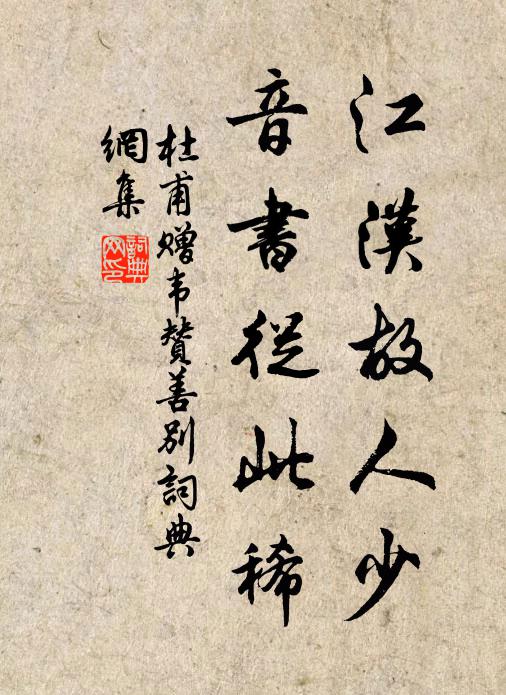 江漢故人少
音書從此稀
杜甫贈韦贊善別詞典
網集
詞典
网印